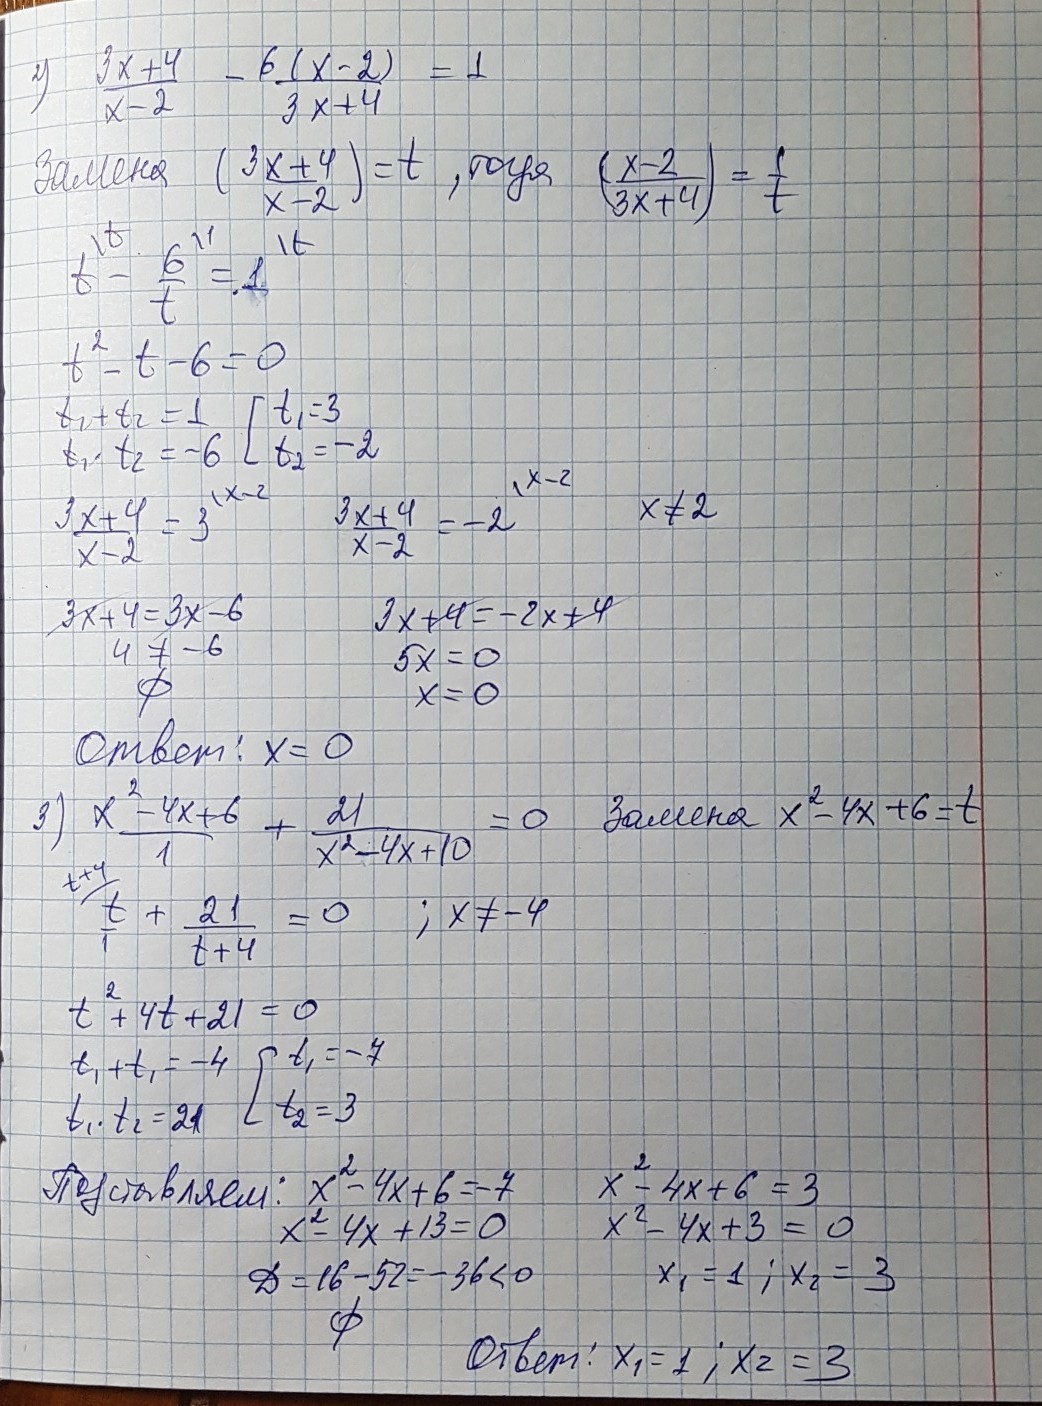 2) (3x+4)/(x-2) - 6(x-2)/(3x+4) = 1
Замена ((3x+4)/(x-2)) = t, тогда ((x-2)/(3x+4)) = 1/t
t\t - 6/t\1 = 1\t
t² - t - 6 = 0
t₁+t₂ = 1 [ t₁=3
t₁·t₂ = -6 [ t₂=-2
(3x+4)/(x-2) = 3\x-2 (3x+4)/(x-2) = -2\x-2 x≠2
3x+4=3x-6 3x+4=-2x+4
4 ≠ -6 5x=0
∅ x=0
Ответ: x=0
3) (x²-4x+6)/1 + 21/(x²-4x+10) = 0 Замена x²-4x+6=t
t+4/ t/1 + 21/(t+4) = 0 ; x≠-4
t²+4t+21=0
t₁+t₁=-4 [ t₁=-7
t₁·t₂=21 [ t₂=3
Подставляем: x²-4x+6=-7 x²-4x+6=3
x²-4x+13=0 x²-4x+3=0
D=16-52=-36<0 x₁=1; x₂=3
∅
Ответ: x₁=1; x₂=3